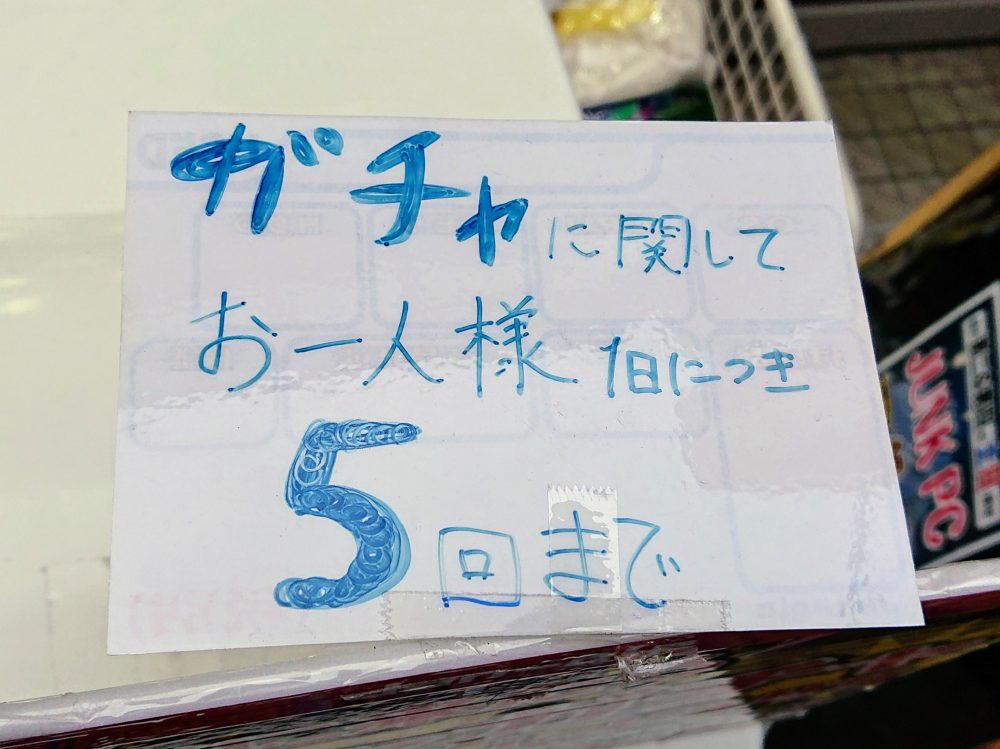 ガチャに関して
お一人様 1日につき
5回まで
JUNK PC